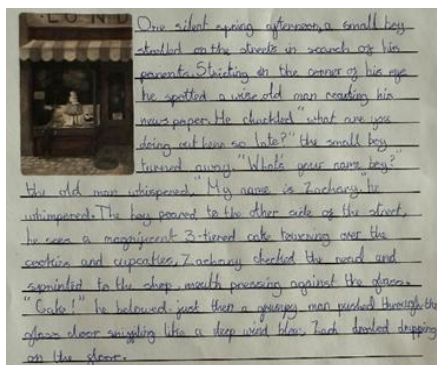 LOND
One silent spring afternoon, a small boy
strolled on the streets in search of his
parents. in the corner of his eye
he spotted a wise old man reading his
newspaper. He chuckled "what are you
doing out here so late?" the small boy
turned away. "What's your name boy?"
the old man whispered. "My name is Zachary," he
whimpered. The boy peared to the other side of the street,
he sees a magnificent 3-tiered cake towering over the
cookies and cupcakes, Zachary checked the road and
sprinted to the shop, mouth pressing against the glass.
"Cake!" he belowed. just then a grumpy man pushed through the
glass door like a deep wind blow. Zach dripping
on the floore.